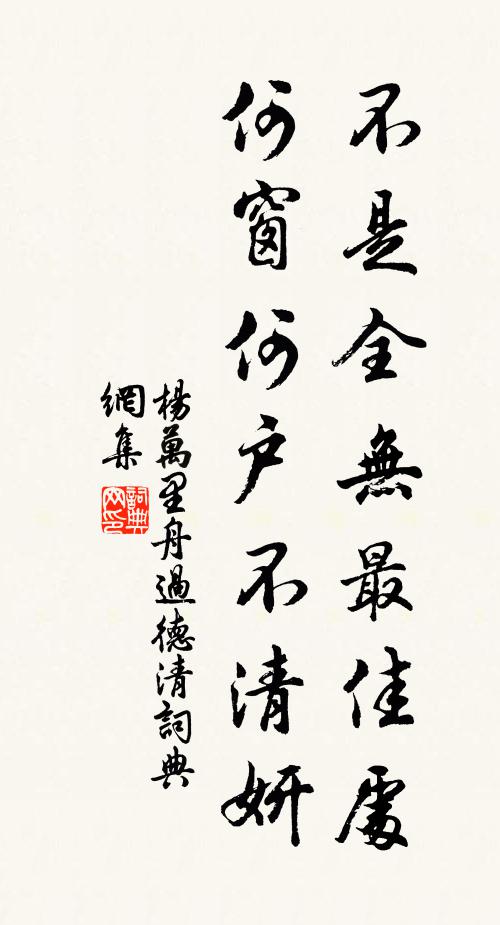 不是全無最佳處
何窗何戶不清妍
楊萬里舟過德清詞典
網集
詞典网印